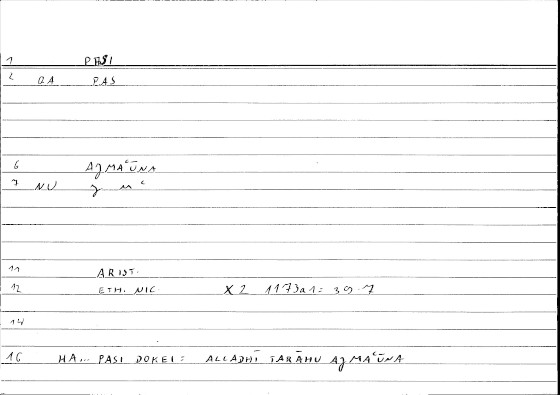 1 PASI
2 QA PAS
6 AJMAʿŪNA
7 NU J M ʿ
11 ARIST.
12 ETH. NIC. X2 1173a1 = 39.7
14
16 HA... PASI DOKEI = ALLADHĪ TARĀHU AJMAʿŪNA